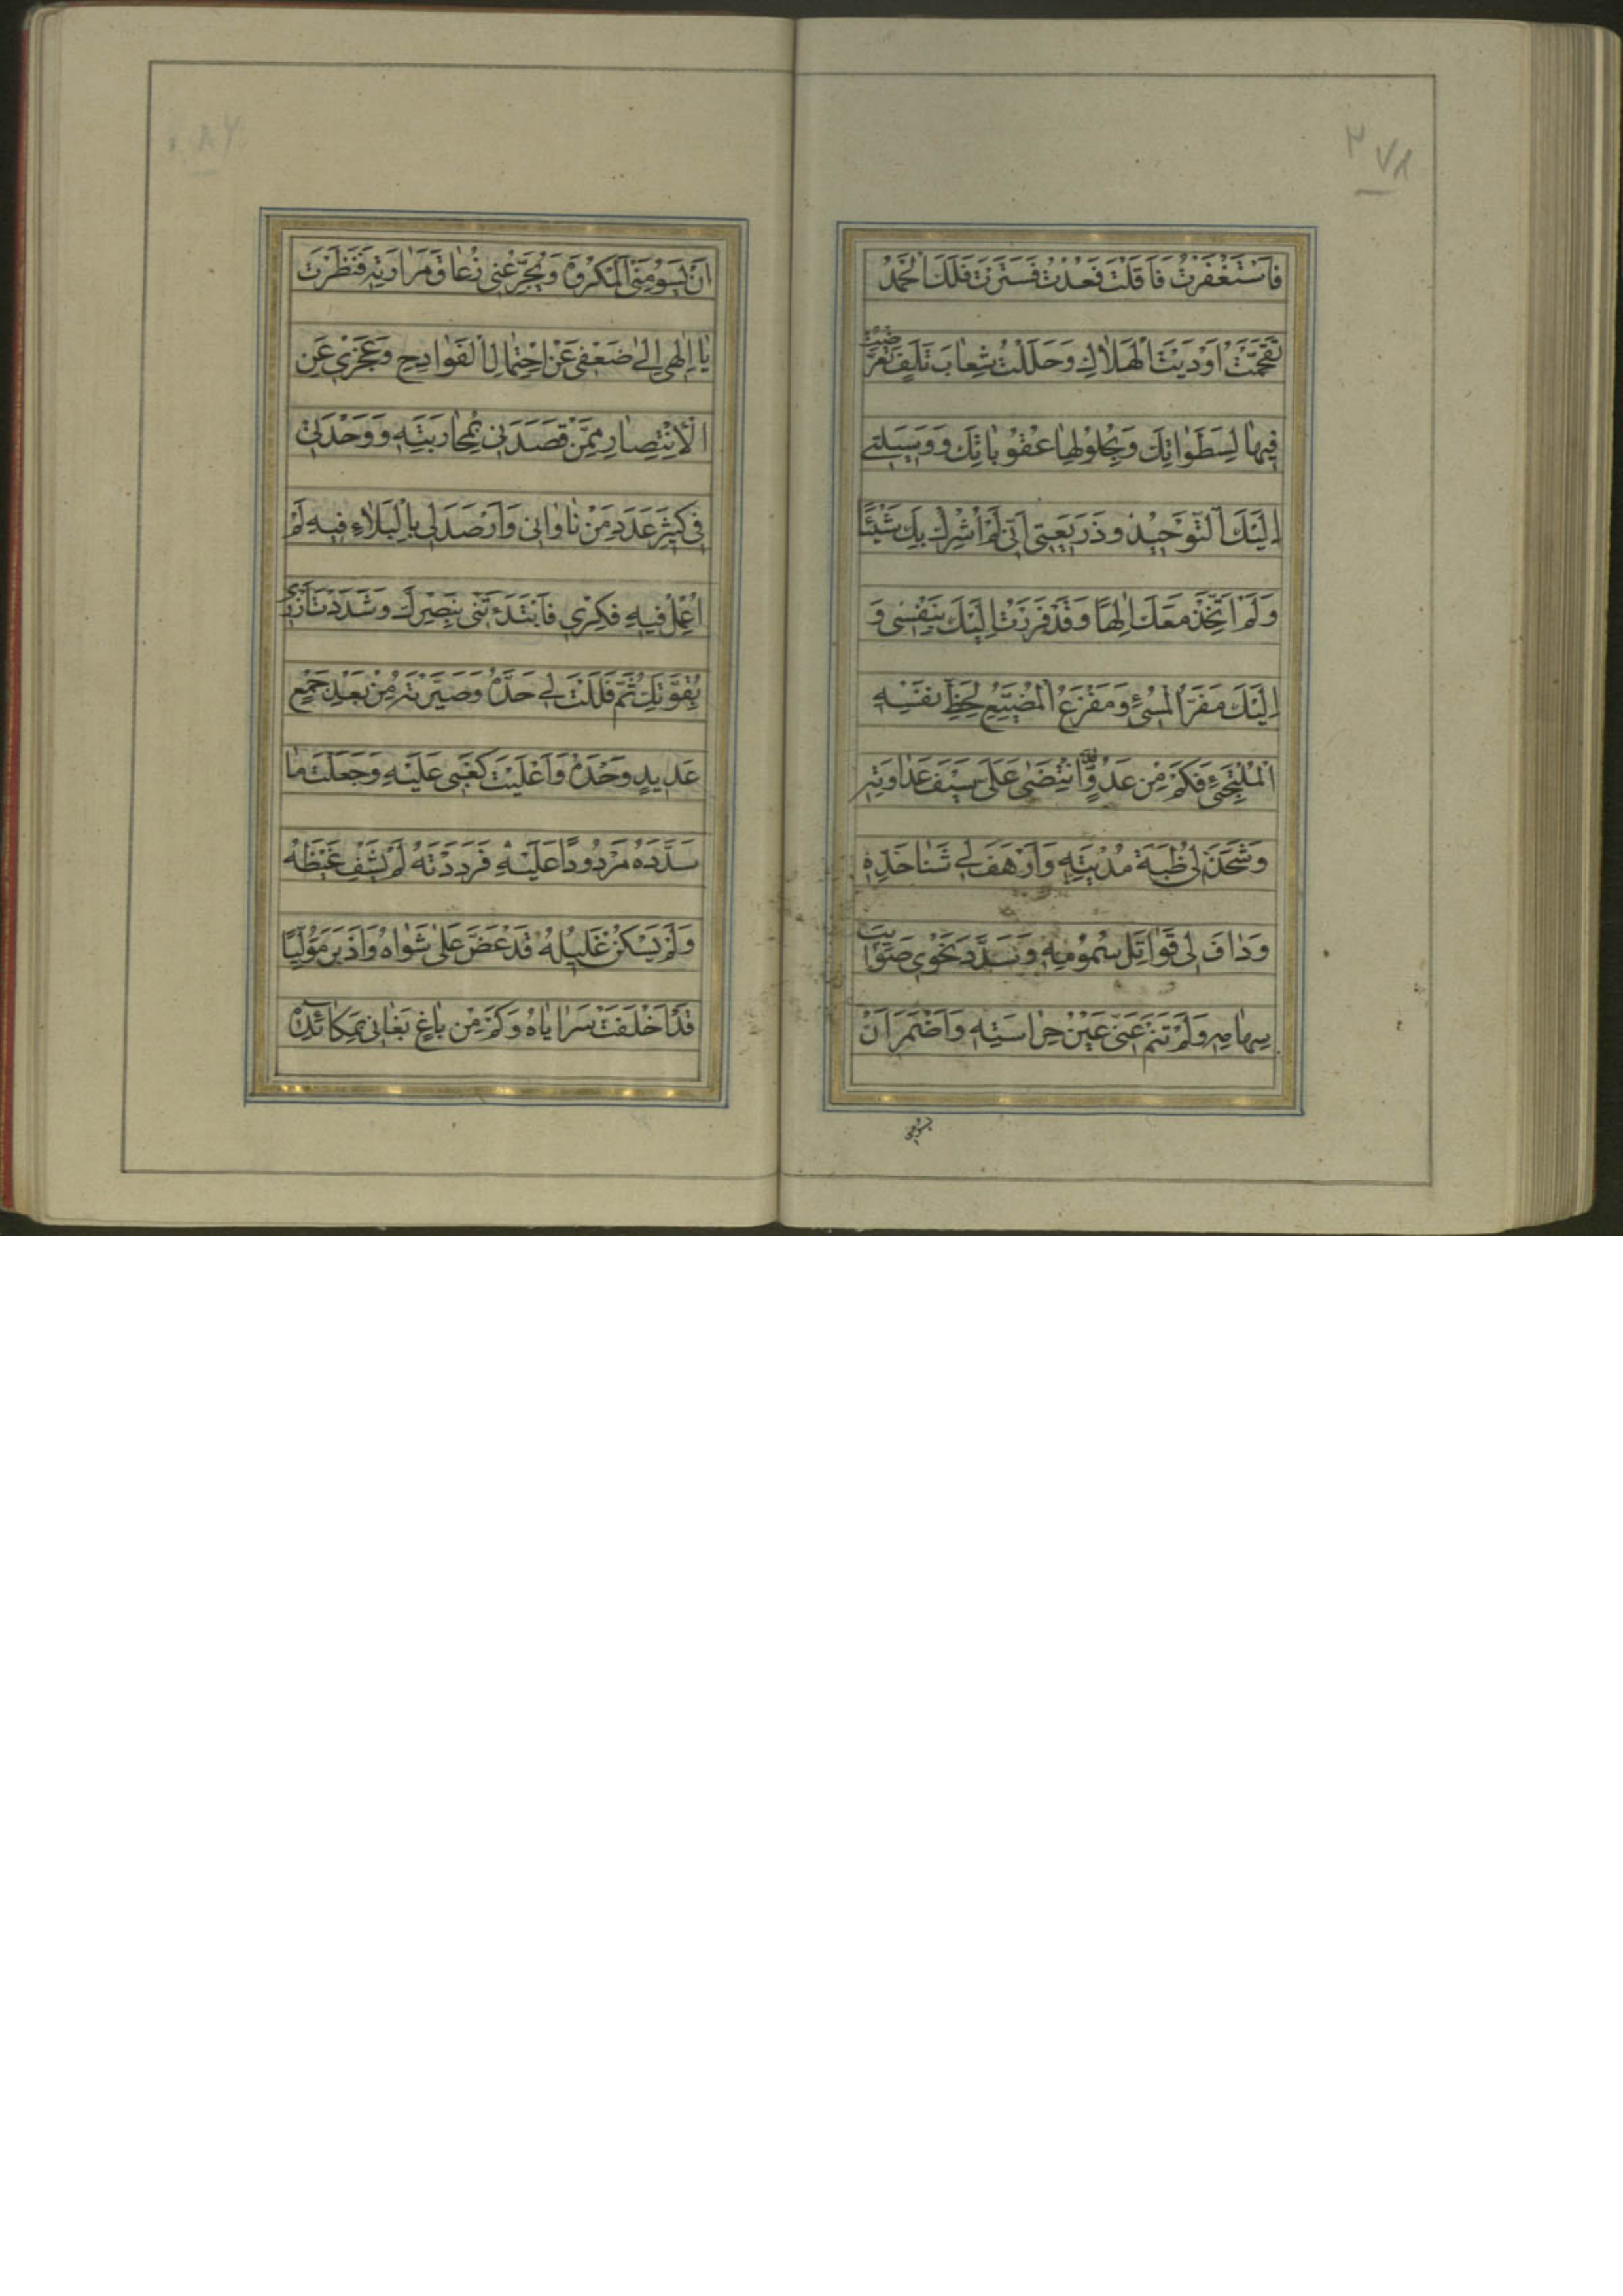 ٢٧٨
فَاسْتَغْفَرْتُ فَاَقَلْتَ فَعُدْتُ فَسَتَرْتَ فَلَكَ الْحَمْدُ
تَقَحَّمْتُ اَوْدِيَتَ الْهَلَاكِ وَحَلَلْتُ شِعابَ تَلَفٍ تَعَرَّضْتُ
فِيها لِسَطَوَاتِكَ وَبِحُلُولِها عُقُوباتِكَ وَوَسيلَتي
اِلَيْكَ التَّوْحيدُ وَذَريعَتي اَنّي لَمْ اُشْرِكْ بِكَ شَيْئًا
وَلَمْ اَتَّخِذْ مَعَكَ اِلٰهًا وَقَدْ فَرَرْتُ اِلَيْكَ بِنَفْسي وَ
اِلَيْكَ مَفَرُّ الْمُسئِ وَمَفْزَعُ الْمُضَيِّعِ لِحَظِّ نَفْسِهِ
الْمُلْتَجِئِ فَكَمْ مِنْ عَدُوٍّ انْتَضى عَلَىَّ سَيْفَ عَداوَتِهِ
وَشَحَذَ لي ظُبَةَ مُدْيَتِهِ وَاَرْهَفَ لي شَبَا حَدِّهِ
وَدافَ لي قَواتِلَ سُمُومِهِ وَسَدَّدَ نَحْوي صَوائِبَ
سِهامِهِ وَلَمْ تَنَمْ عَنّي عَيْنُ حِراسَتِهِ وَاَضْمَرَ اَنْ
يسومنى
اَنْ يَسُومَنِي الْمَكْرُوهَ وَيُجَرِّعَني زُعاقَ مَرارَتِهِ فَنَظَرْتَ
يا اِلٰهي اِلى ضَعْفي عَنْ اِحْتِمالِ الْفَوادِحِ وَعَجْزي عَنِ
الْاِنْتِصارِ مِمَّنْ قَصَدَني بِمُحارَبَتِهِ وَوَحْدَتي
في كَثيرِ عَدَدِ مَنْ ناواني وَاَرْصَدَ لي بِالْبَلاءِ فيهِ لَمْ
اُعْمِلْ فيهِ فِكْري فَابْتَدَءْتَني بِنَصْرِكَ وَشَدَدْتَ اَزْري
بِقُوَّتِكَ ثُمَّ فَلَلْتَ لي حَدَّهُ وَصَيَّرْتَهُ مِنْ بَعْدِ جَمْعٍ
عَديدٍ وَحْدَهُ وَاَعْلَيْتَ كَعْبي عَلَيْهِ وَجَعَلْتَ ما
سَدَّدَهُ مَرْدُودًا عَلَيْهِ فَرَدَدْتَهُ لَمْ يَشْفِ غَيْظَهُ
وَلَمْ يَسْكُنْ غَليلُهُ قَدْ عَضَّ عَلى شَواهُ وَاَدْبَرَ مُوَلِّيًا
قَدْ اَخْلَفَتْ سَراياهُ وَكَمْ مِنْ باغٍ بَغاني بِمَكائِدِهِ